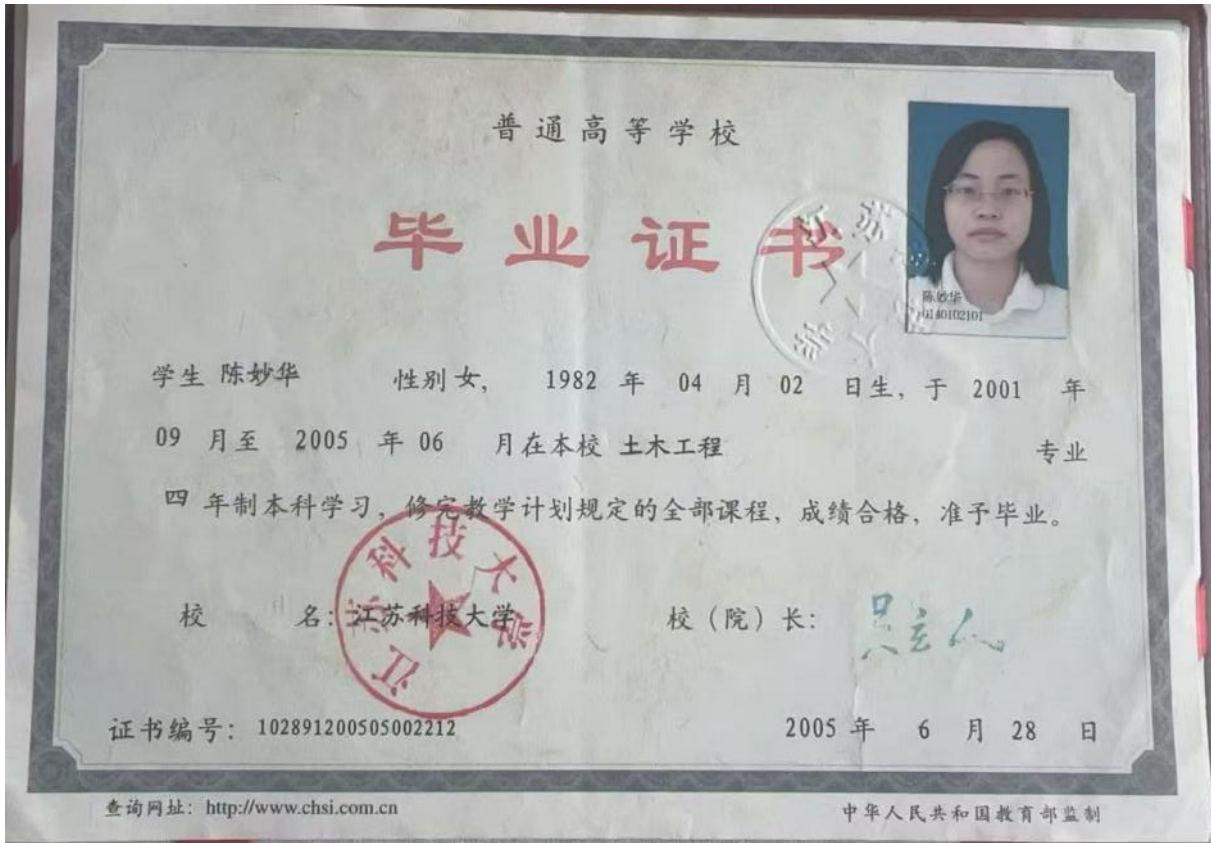 普通高等学校
毕业证书
陈妙华
0140102101
学生 陈妙华 性别 女, 1982 年 04 月 02 日生, 于 2001 年
09 月至 2005 年 06 月在本校 土木工程 专业
四 年制本科学习, 修完教学计划规定的全部课程, 成绩合格, 准予毕业。
江苏科技大学
校 名: 江苏科技大学 校(院)长:
证书编号: 102891200505002212 2005 年 6 月 28 日
查询网址: http://www.chsi.com.cn 中华人民共和国教育部监制